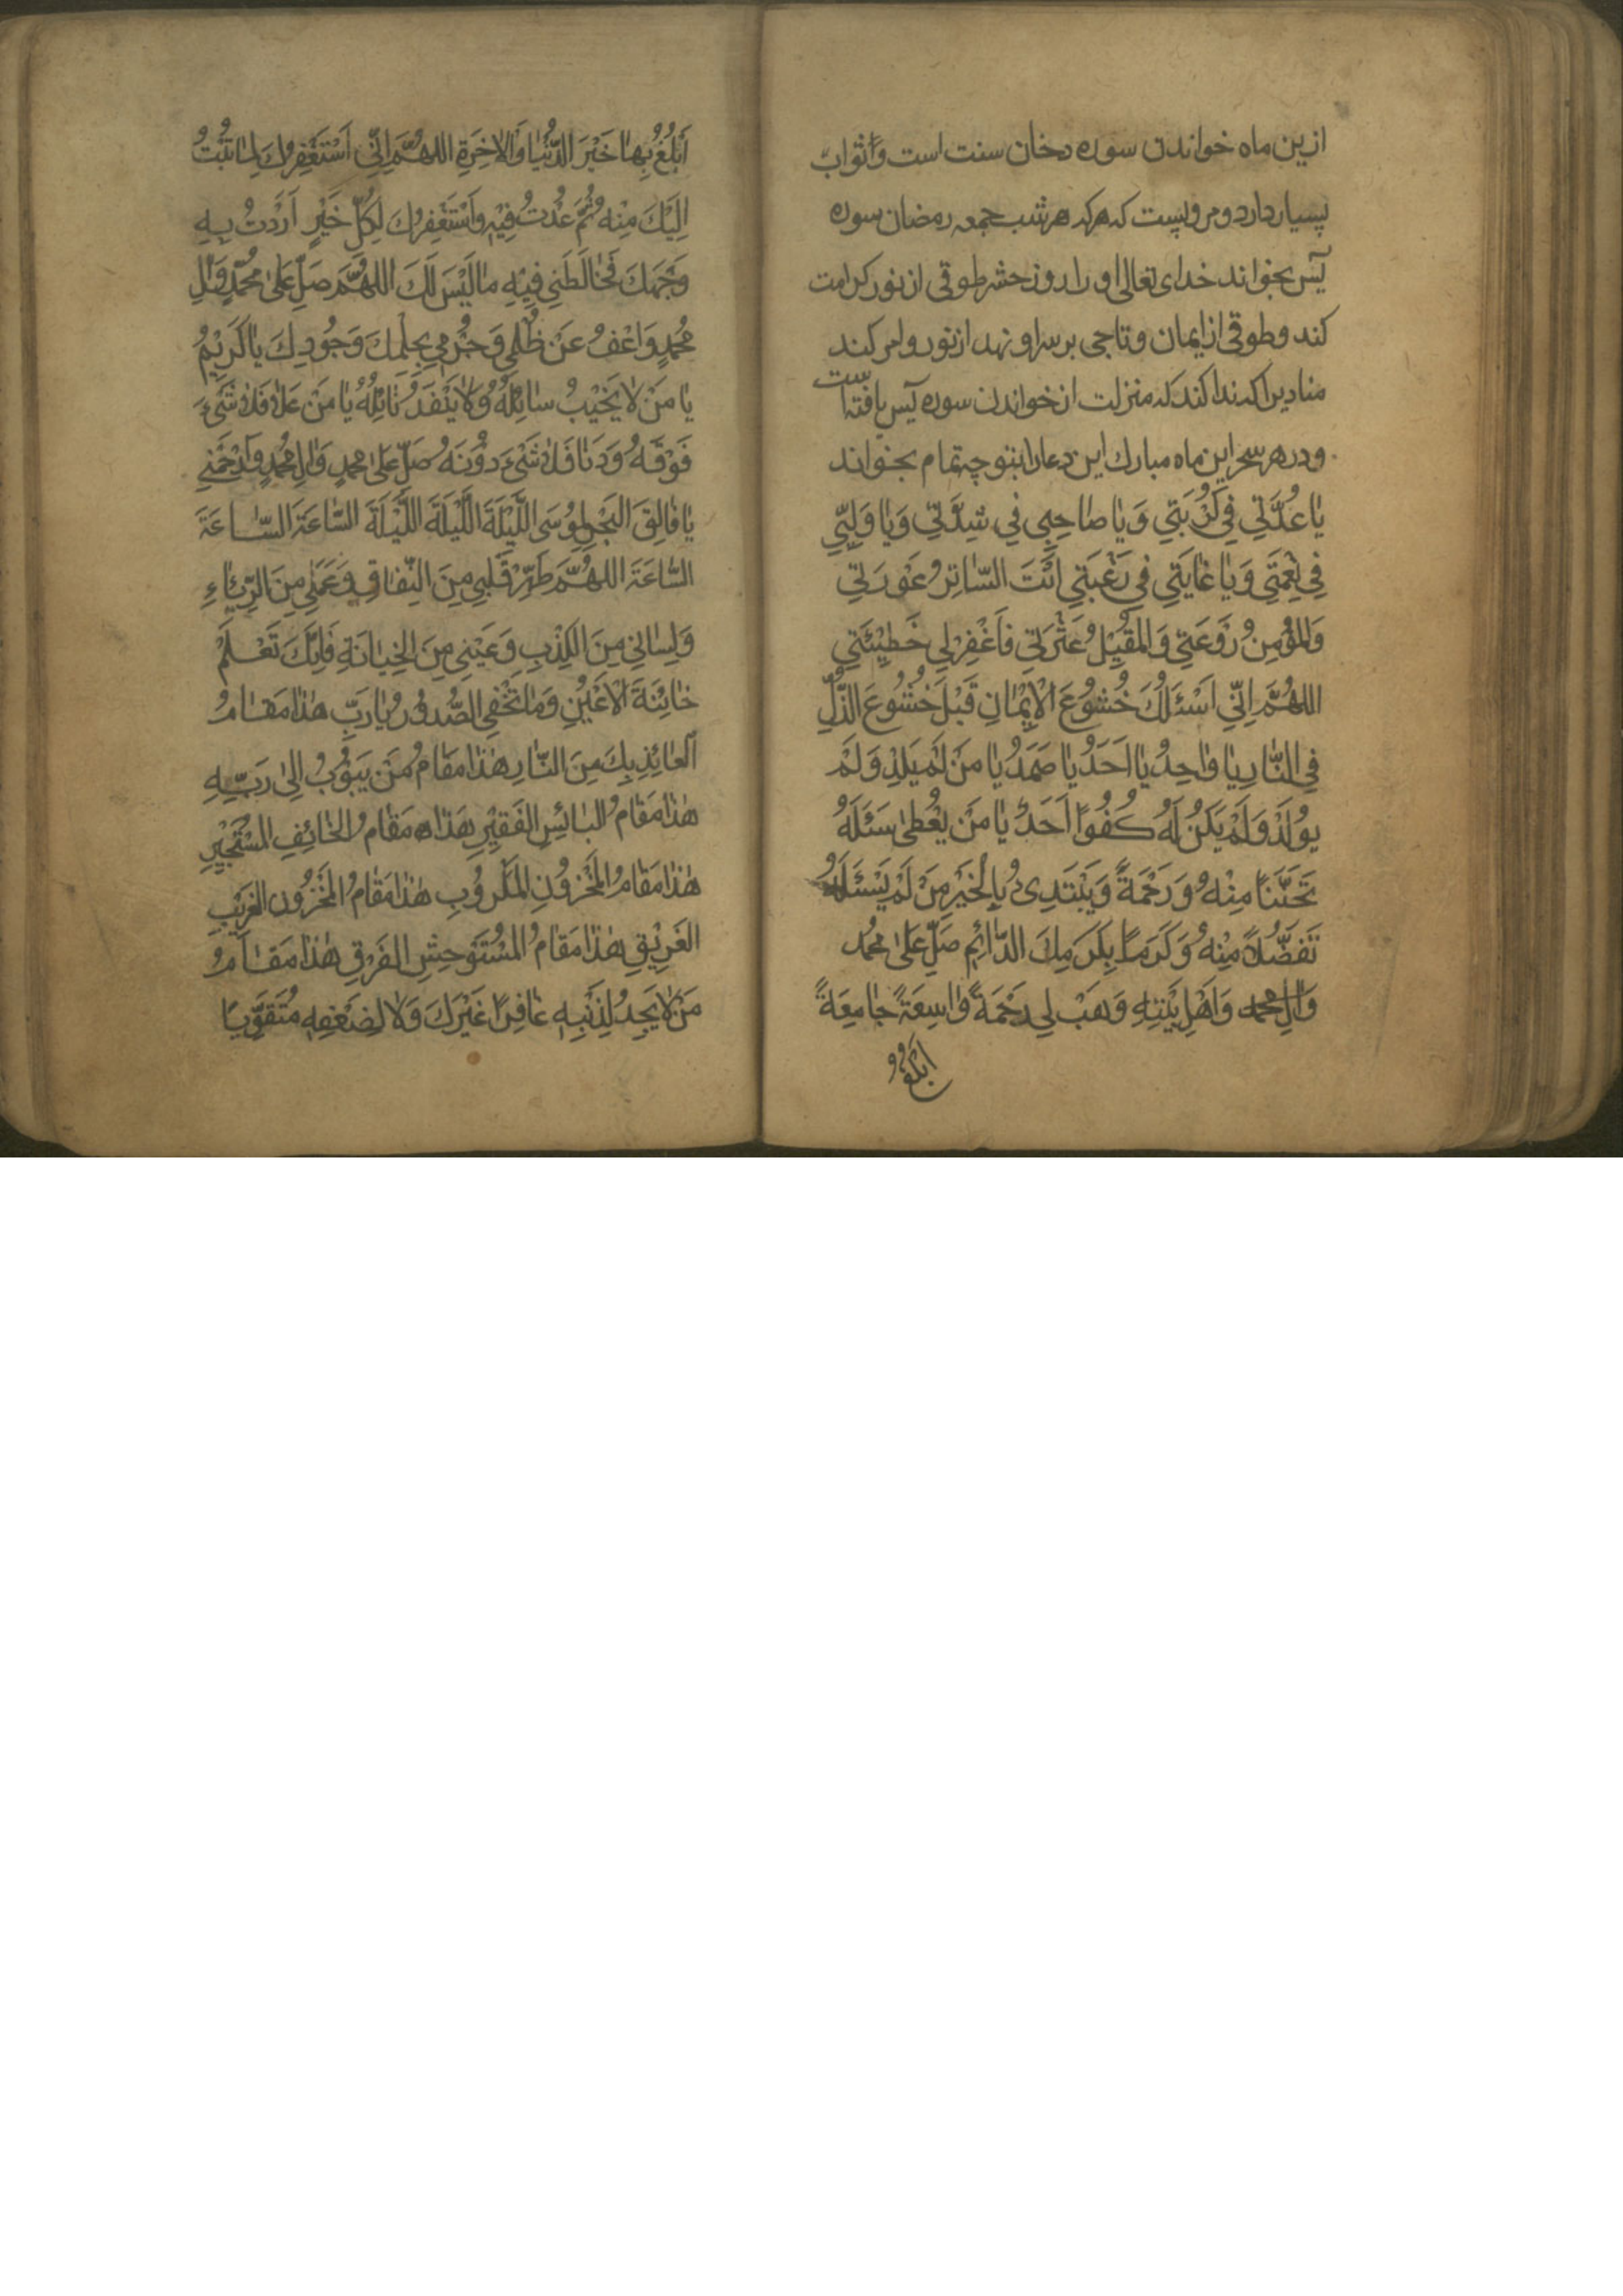 ازین ماه خواندن سوره دخان سنت است و ثواب
بسیار دارد و مرویست که هر که هر شب جمعه رمضان سوره
یس بخواند خدای تعالی او را روز حشر طوقی از نور کرامت
کند و طوقی از ایمان و تاجی بر سر او نهد از نور و امر کند
منادیرا که ندا کند که منزلت از خواندن سوره یس یافته است
و در هر سحر این ماه مبارک این دعا را بتوجه تمام بخواند
يٰا عُدَّتِي فِي كُرْبَتِي وَيٰا صٰاحِبِي فِي شِدَّتِي وَيٰا وَلِيِّي
فِي نِعْمَتِي وَيٰا غٰايَتِي فِي رَغْبَتِي اَنْتَ السّٰاتِرُ عَوْرَتِي
وَالْمُؤْمِنُ رَوْعَتِي وَالْمُقِيْلُ عَثْرَتِي فَاغْفِرْلِي خَطِيْئَتِي
اللهُمَّ اِنِّي اَسْئَلُكَ خُشُوْعَ الْاِيْمٰانِ قَبْلَ خُشُوْعَ الذُّلِّ
فِي النّٰارِ يٰا وٰاحِدُ يٰا اَحَدُ يٰا صَمَدُ يٰا مَنْ لَمْ يَلِدْ وَلَمْ
يُوْلَدْ وَلَمْ يَكُنْ لَهُ كُفُوًا اَحَدٌ يٰا مَنْ يُعْطىٰ سَئَلَهُ
تَحَنُّنًا مِنْهُ وَرَحْمَةً وَيَبْتَدِئُ بِالْخَيْرِ مَنْ لَمْ يَسْئَلْهُ
تَفَضُّلاً مِنْهُ وَكَرَمًا بِكَرَمِكَ الدّٰائِمِ صَلِّ عَلىٰ مُحَمَّد
وَاٰلِ محمد وَاَهْلِ بَيْتِهِ وَهَبْ لِي رَحْمَةً وٰاسِعَةً جٰامِعَةً
ابلغ
اَبْلُغُ بِهٰا خَيْرَ الدُّنْيٰا وَالْاٰخِرَةِ اللهُمَّ اِنِّي اَسْتَغْفِرُكَ لِمٰا تُبْتُ
اِلَيْكَ مِنْهُ ثُمَّ عُدْتُ فِيْهِ وَاَسْتَغْفِرُكَ لِكُلِّ خَيْرٍ اَرَدْتُ بِهِ
وَجْهَكَ فَخٰالَطَنِي فِيْهِ مٰا لَيْسَ لَكَ اللهُمَّ صَلِّ عَلىٰ مُحَمَّدٍ وَاٰلِ
مُحَمَّدٍ وَاعْفُ عَنْ ظُلْمِي وَجُرْمِي بِحِلْمِكَ وَجُوْدِكَ يٰا كَرِيْمُ
يٰا مَنْ لٰا يَخِيْبُ سٰائِلُهُ وَلٰا يَنْفَدُ نٰائِلُهُ يٰا مَنْ عَلٰا فَلٰا شَيْءَ
فَوْقَهُ وَدَنٰا فَلٰا شَيْءَ دُوْنَهُ صَلِّ عَلىٰ مُحَمَّدٍ وَاٰلِ مُحَمَّدٍ وَارْحَمْنِي
يٰا فٰالِقَ الْبَحْرِ لِمُوْسَى اللَّيْلَةَ اللَّيْلَةَ اللَّيْلَةَ السّٰاعَةَ السّٰاعَةَ
السّٰاعَةَ اللهُمَّ طَهِّرْ قَلْبِي مِنَ النِّفٰاقِ وَعَمَلِي مِنَ الرِّيٰاءِ
وَلِسٰانِي مِنَ الْكِذْبِ وَعَيْنِي مِنَ الْخِيٰانَةِ فَاِنَّكَ تَعْلَمُ
خٰائِنَةَ الْاَعْيُنِ وَمٰا تُخْفِي الصُّدُوْرُ يٰا رَبِّ هٰذٰا مَقٰامُ
الْعٰائِذِ بِكَ مِنَ النّٰارِ هٰذٰا مَقٰامُ مَنْ يَبُوْبُ اِلىٰ رَبِّهِ
هٰذٰا مَقٰامُ الْبٰائِسِ الْفَقِيْرِ هٰذٰا مَقٰامُ الْخٰائِفِ الْمُسْتَجِيْرِ
هٰذٰا مَقٰامُ الْمَحْزُوْنِ الْمَكْرُوْبِ هٰذٰا مَقٰامُ الْمَحْزُوْنِ الْغَرِيْبِ
الْغَرِيْقِ هٰذٰا مَقٰامُ الْمُسْتَوْحِشِ الْفَرِقِ هٰذٰا مَقٰامُ
مَنْ لٰا يَجِدُ لِذَنْبِهِ غٰافِرًا غَيْرَكَ وَلٰا لِضَعْفِهِ مُتَقَوِّيًا